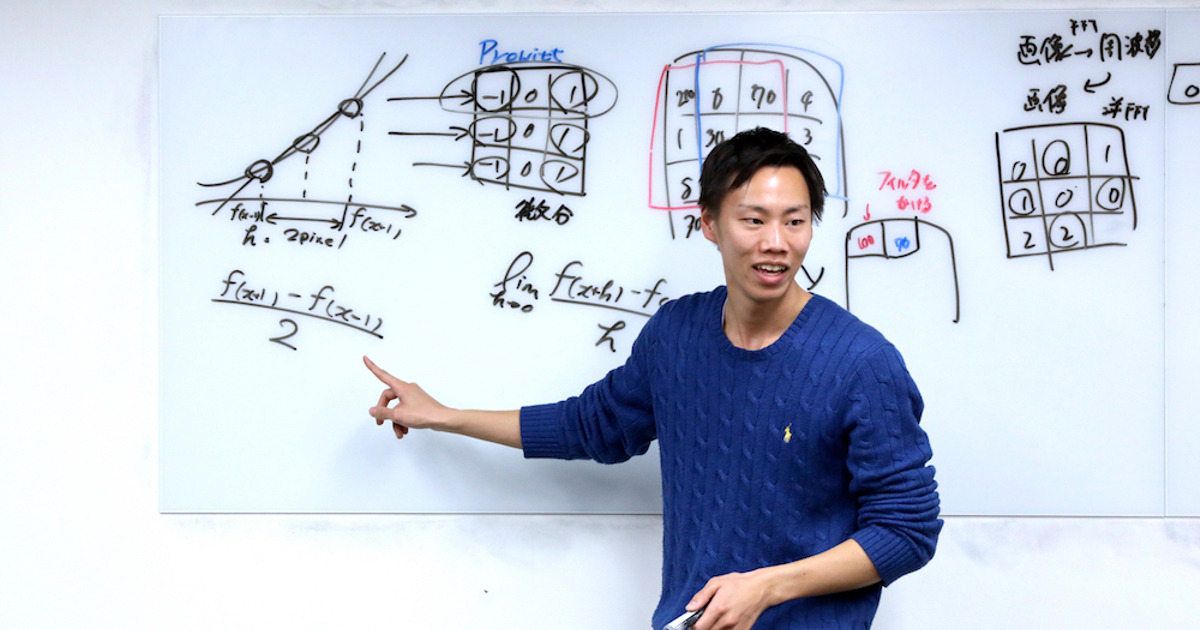 Prewitt
-1 0 1
-1 0 1
-1 0 1
微分
f(x-1)
f(x-1)
h = 2pixel
f(x+1) - f(x-1)
2
lim
h→0
f(x+h) - f
h
6 70 4
1 30 3
フィルタを
かける
100 90
FFT
画像→周波数
画像
逆FFT
0 0 1
1 0 0
2 2
0